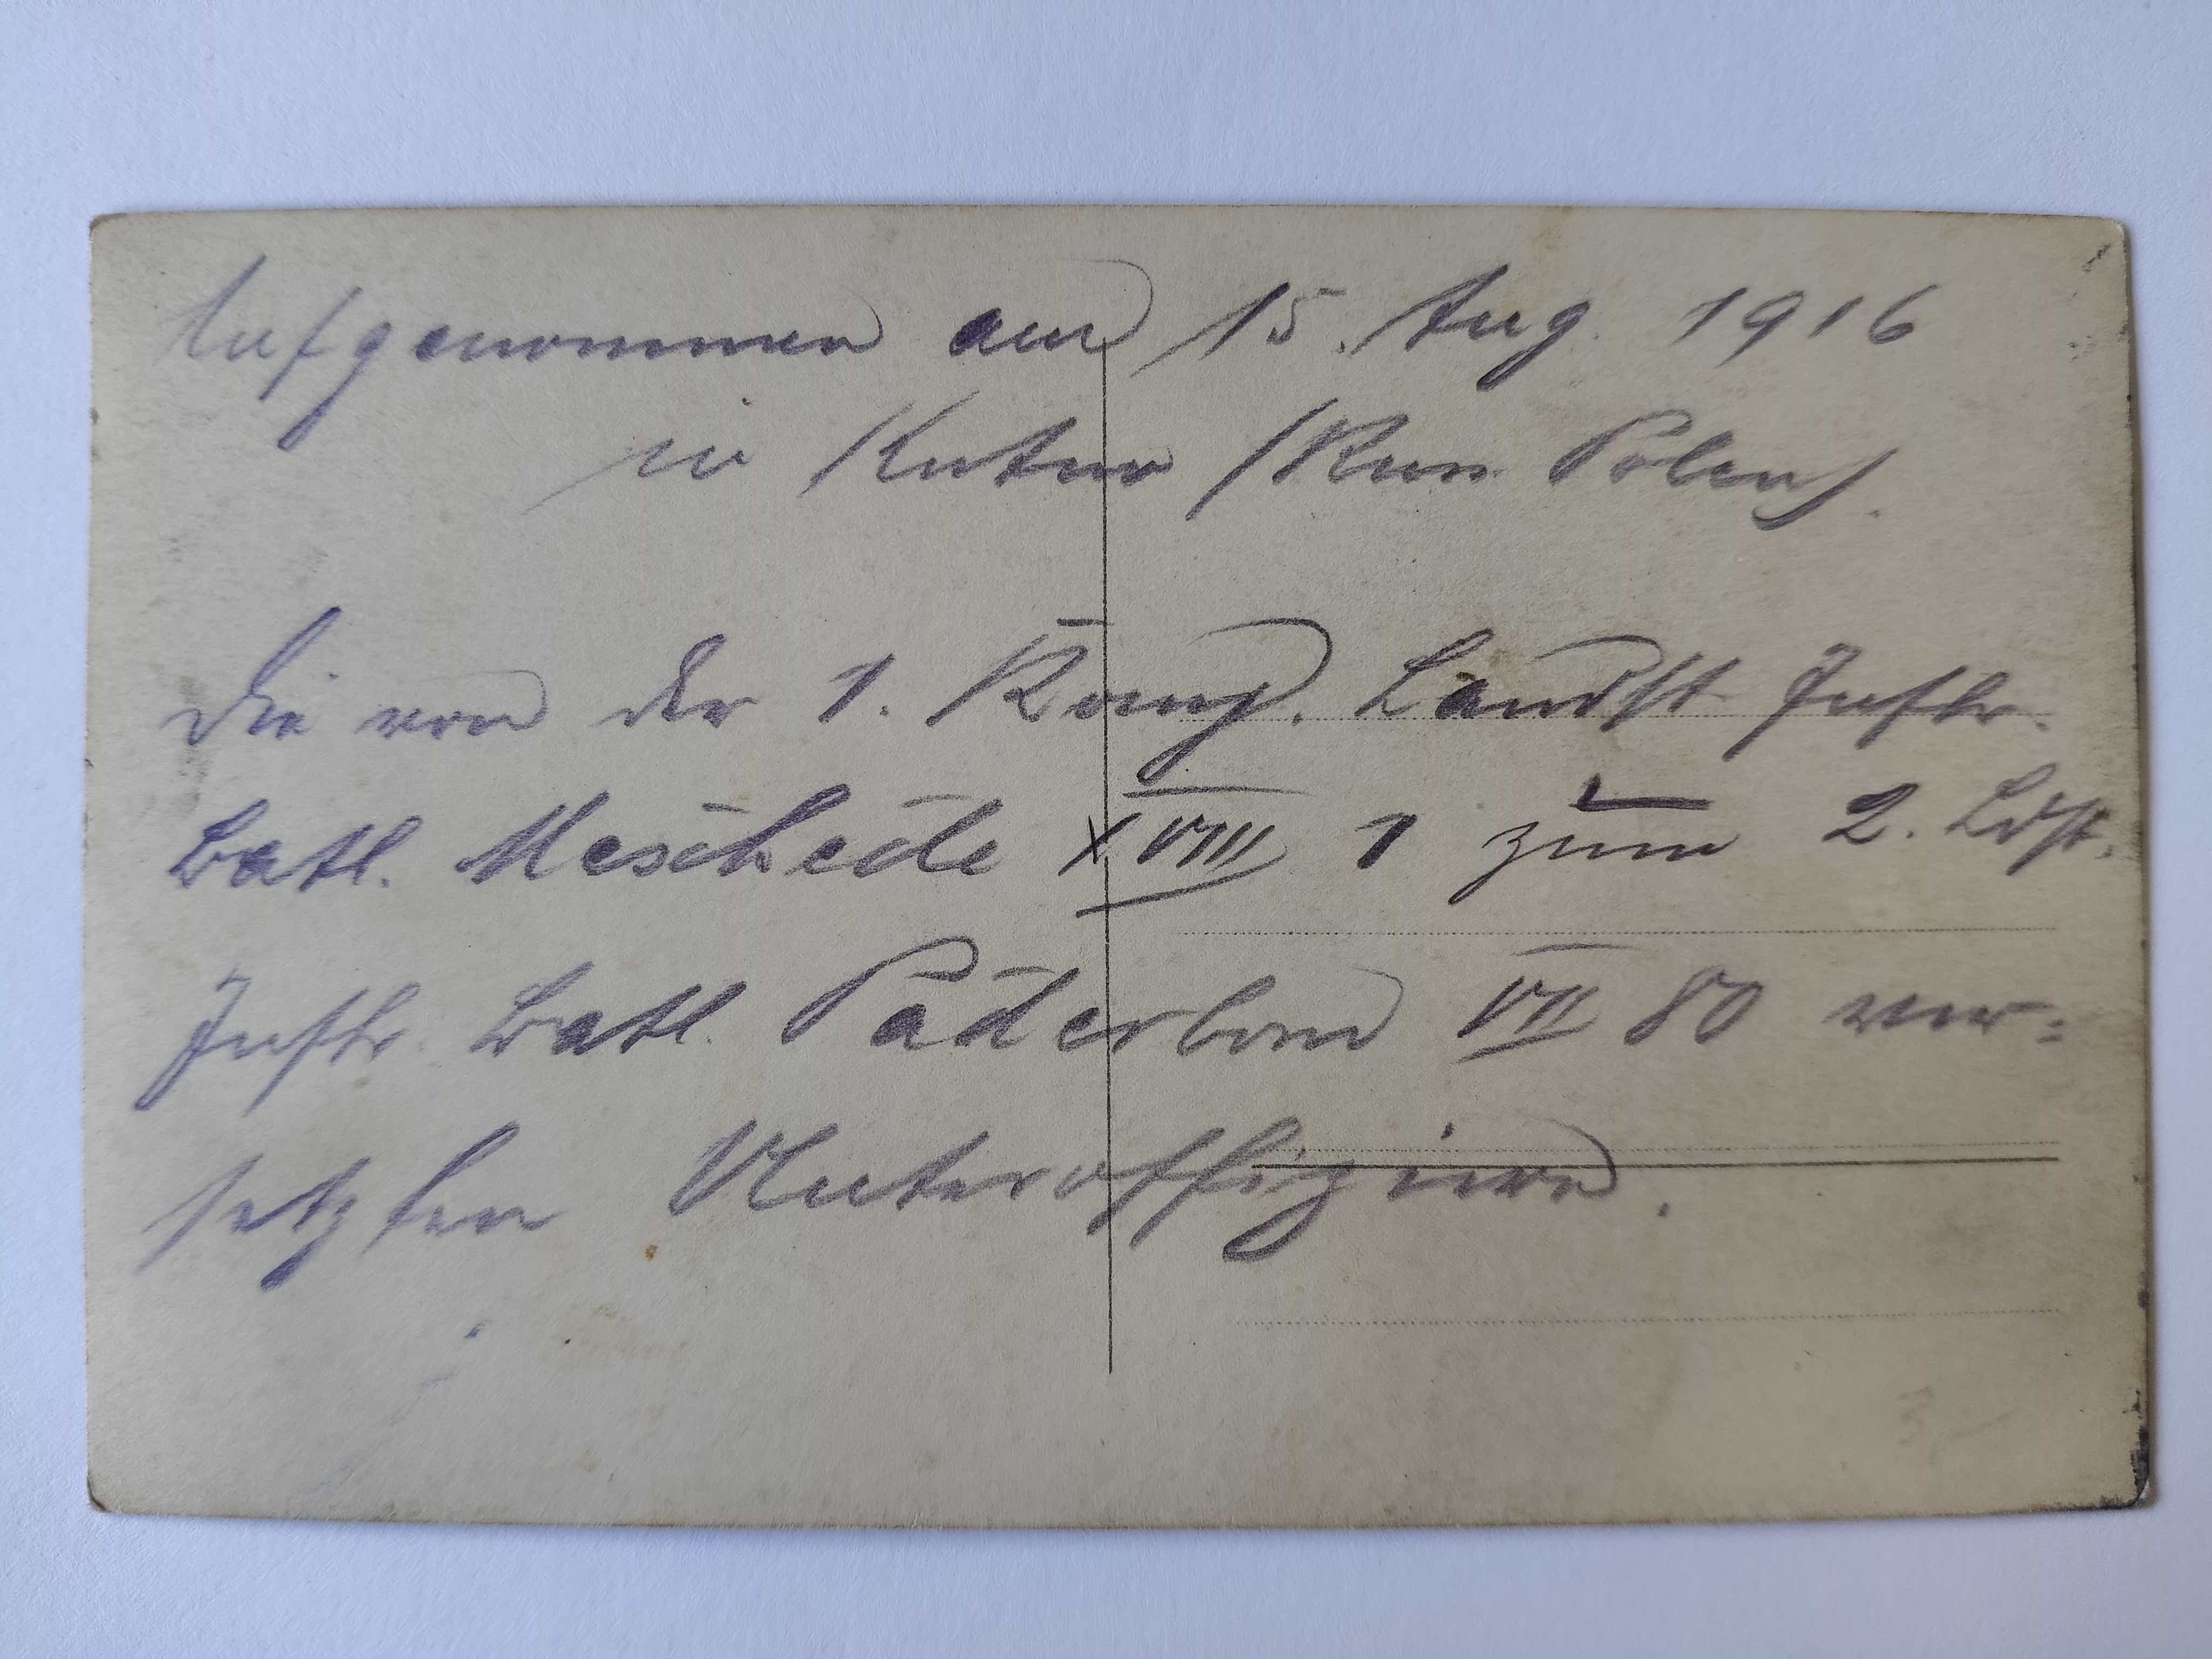 Aufgenommen am 15. Aug. 1916
in Kutno /Russ. Polen/.
Die von der 1. Komp. Landst. Inftr.
Batl. Meschede XVIII 1 zum 2. Ldst.
Inftr. Batl. Paderborn VII 80 ver=
setzten Unteroffiziere.